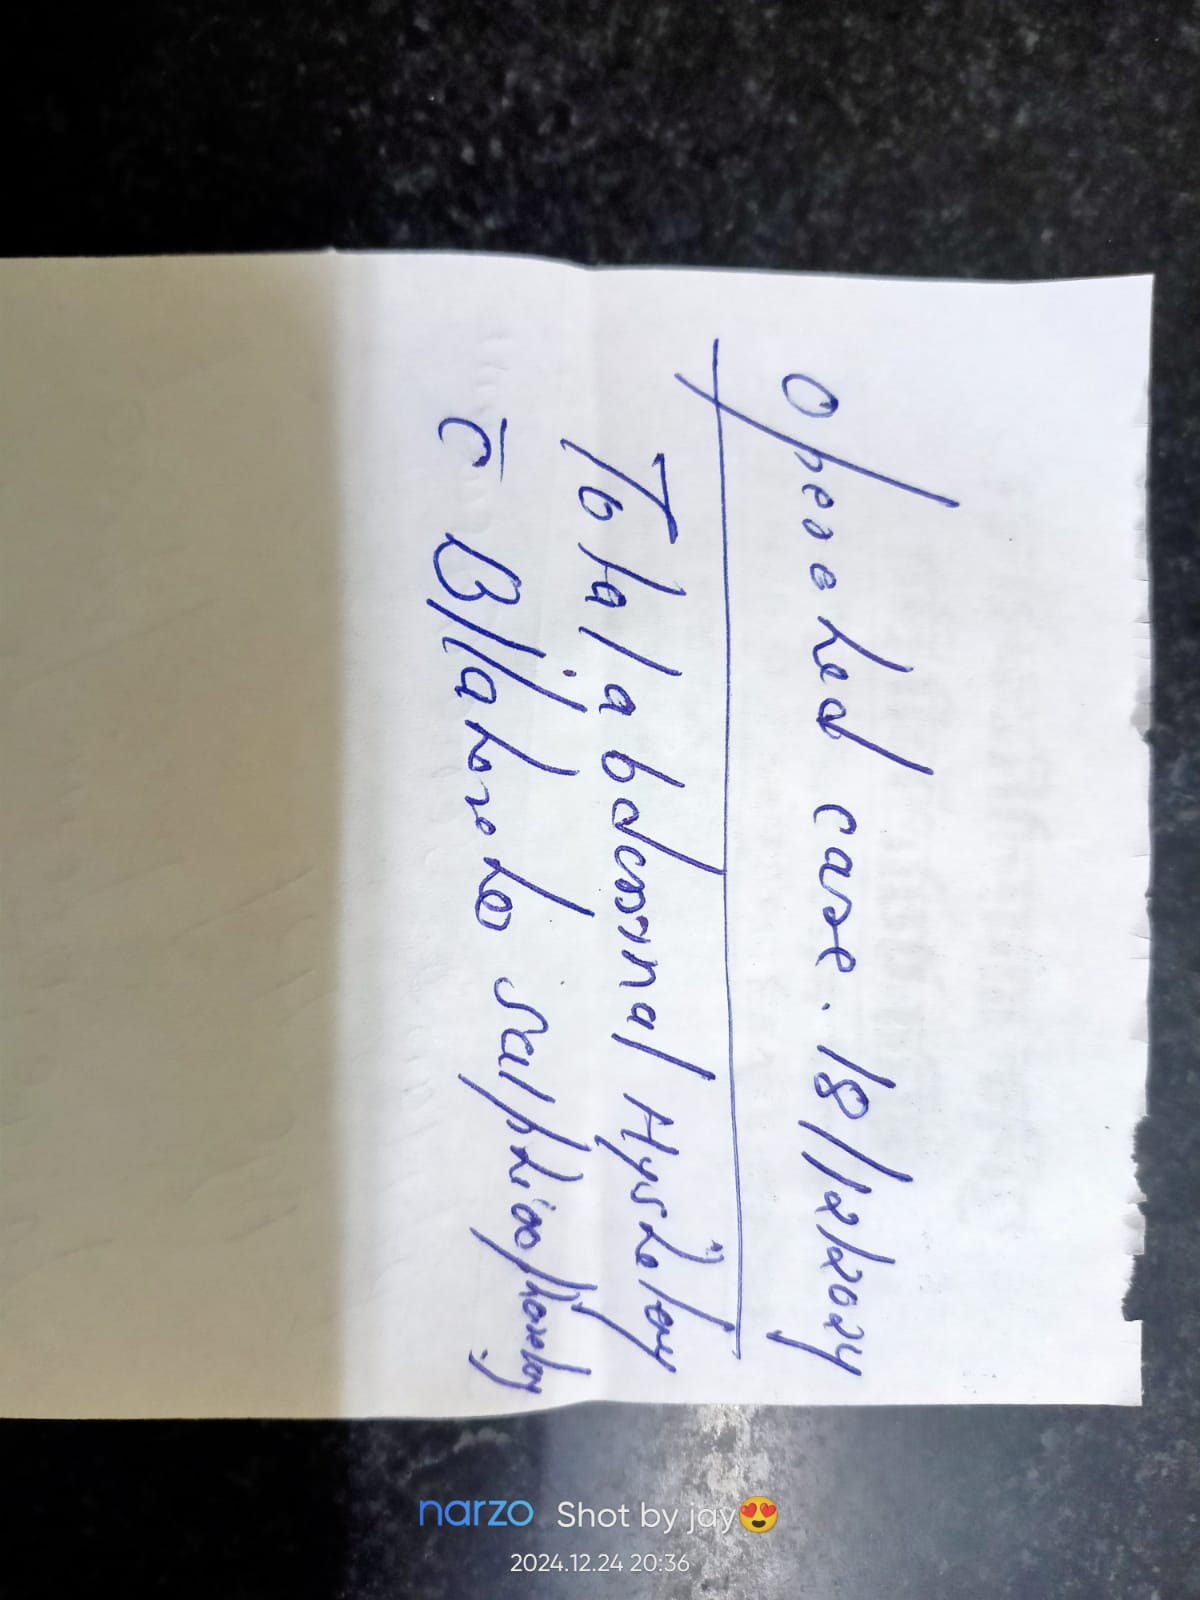 Opereted case. 18/12/2024
Total abdominal Hysteloy
c̄ B/lateral salpingoophorectomy
narzo Shot by jay😍
2024.12.24 20:36